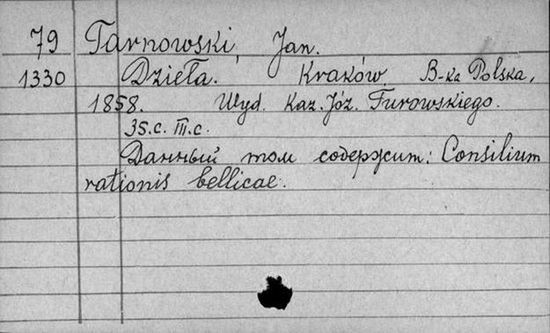 79 Tarnowski, Jan.
1330 Dzieła. Kraków, B-ka Polska,
1858. Wyd. Kaz. Józ. Turowskiego.
35.с. III.с.
Данный том содержит: Consilium
rationis bellicae.